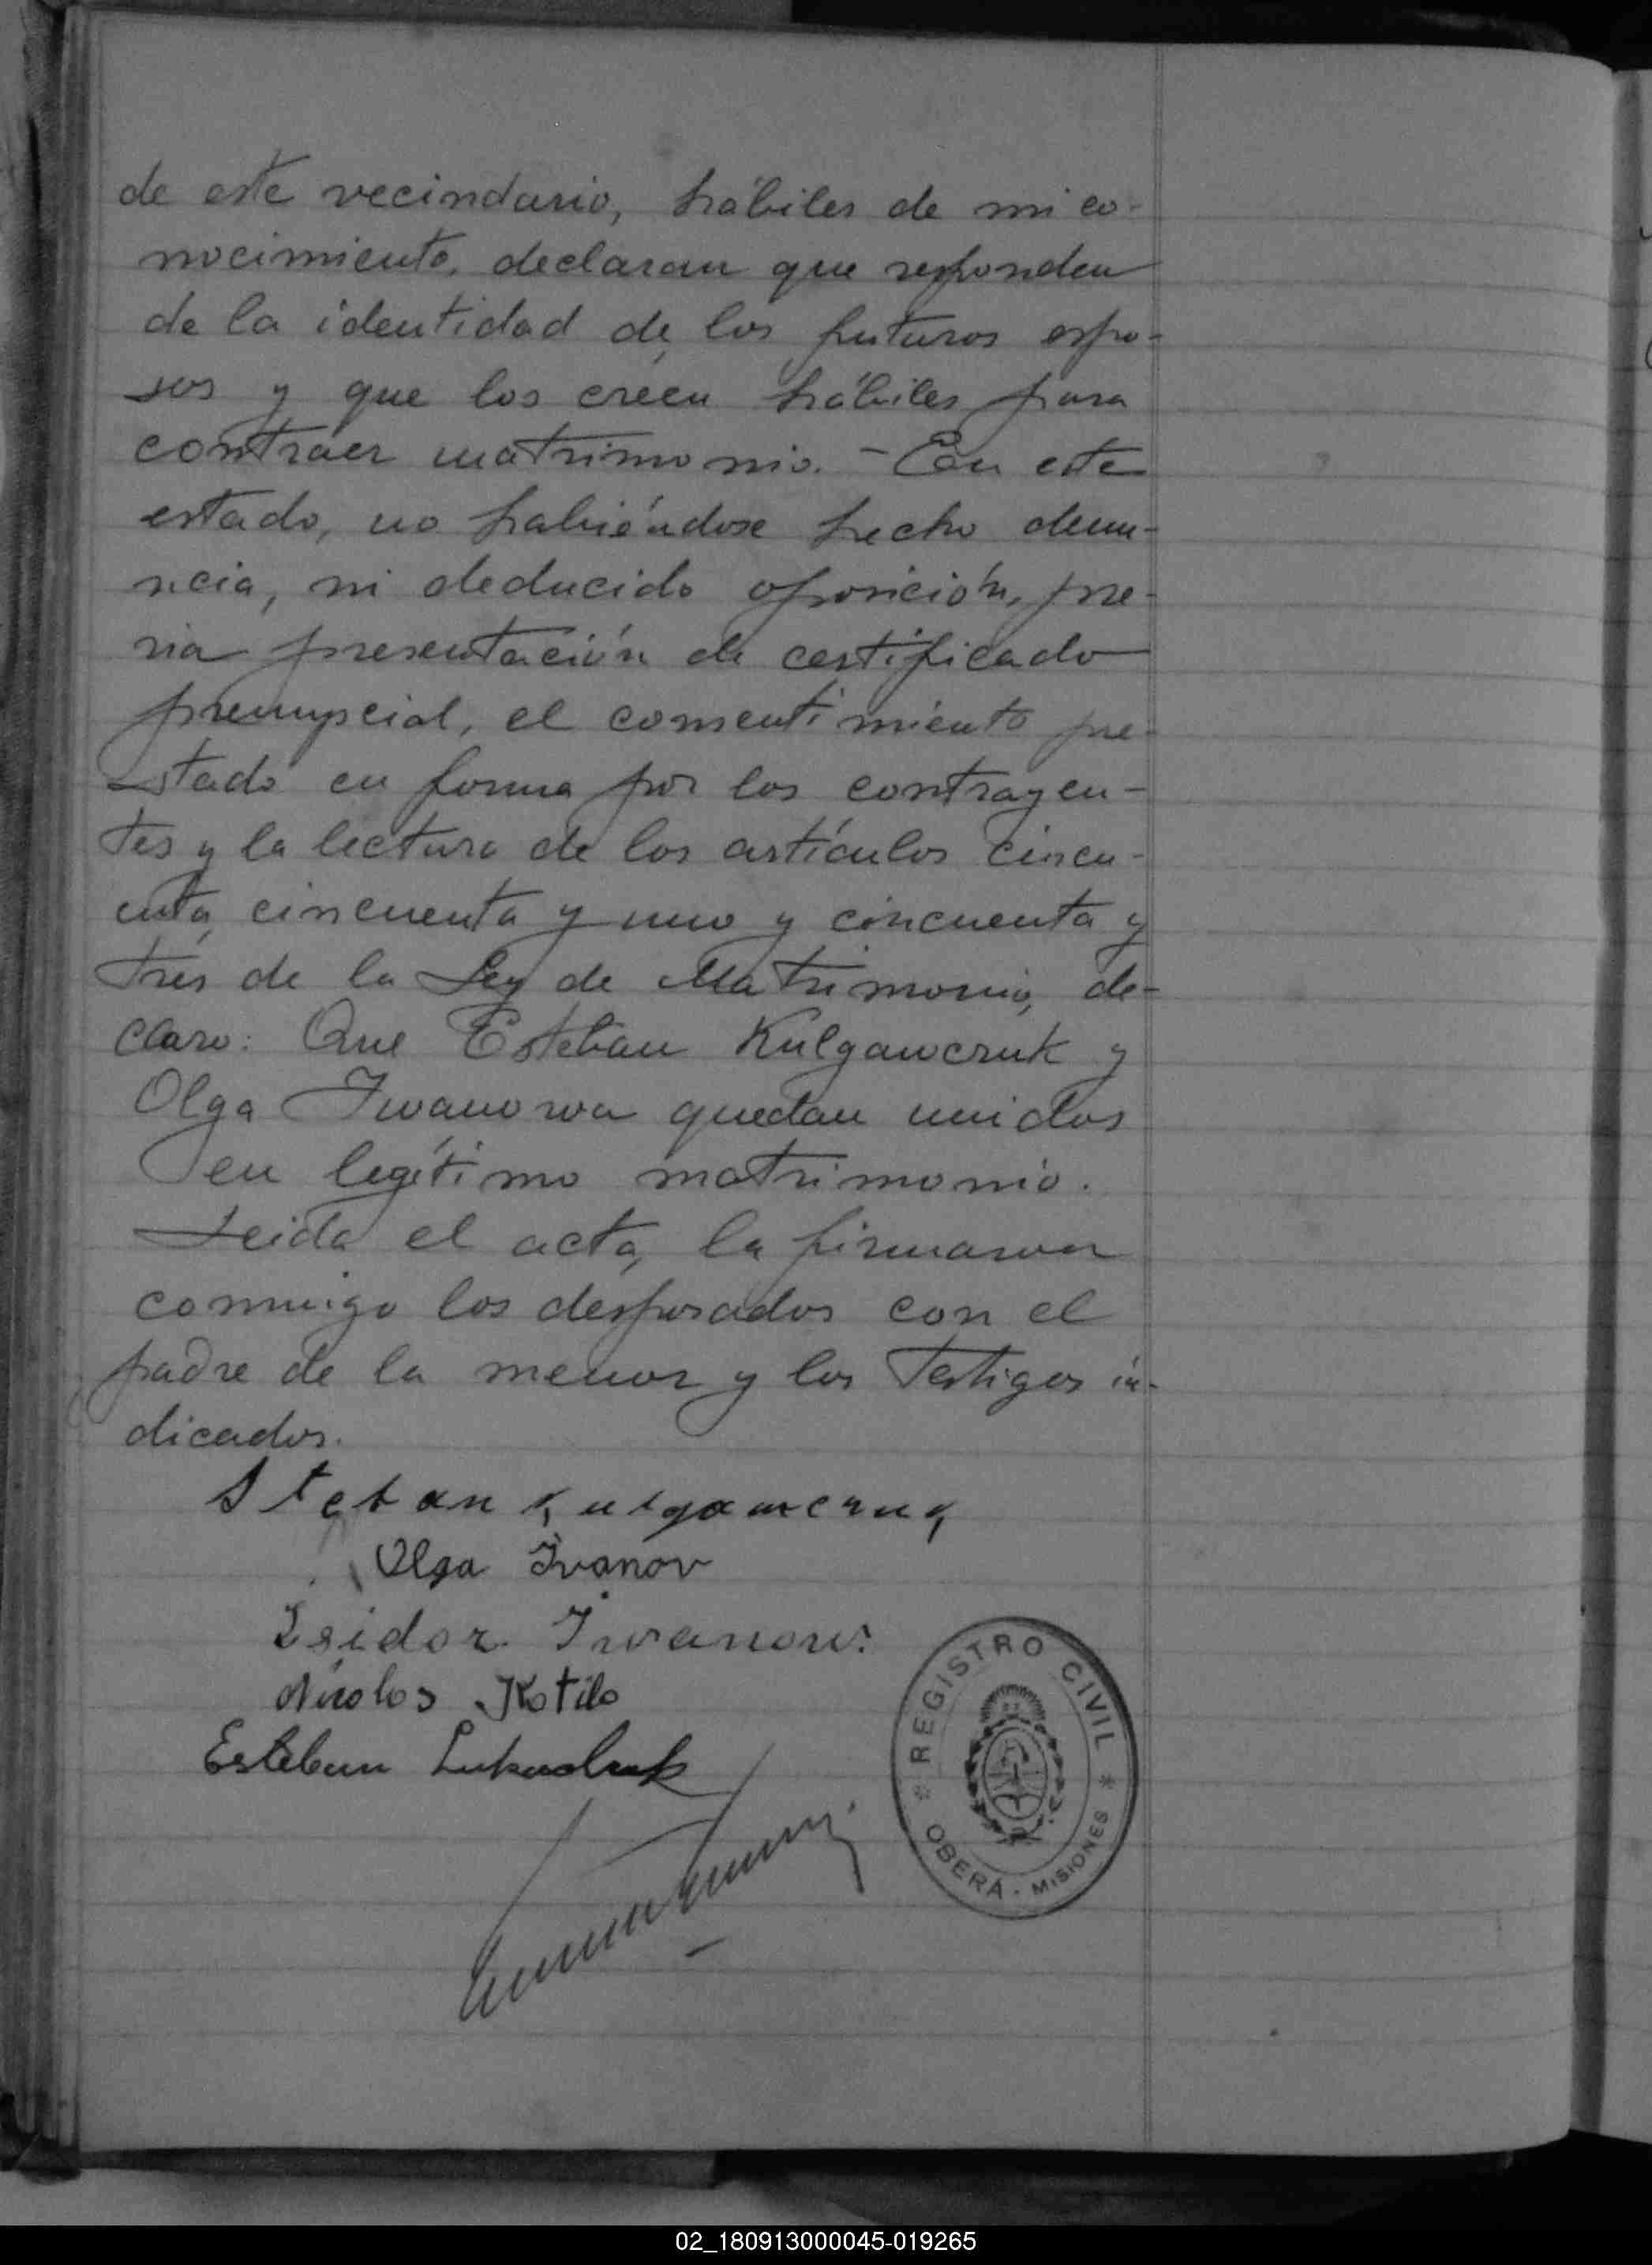 de este vecindario, hábiles de mi co-
nocimiento, declaran que responden
de la identidad de los futuros espo-
sos y que los créen hábiles para
contraer matrimonio. - En este
estado, no habiéndose hecho denun-
ncia, ni deducido oposición, pre-
via presentación de certificado
prenupcial, el consentimiento pre-
stado en forma por los contrayen-
tes y la lectura de los artículos cincu-
enta, cincuenta y uno y cincuenta y
tres de la Ley de Matrimonio, de-
claro: Que Esteban Kulgawczuk y
Olga Iwanowa quedan unidos
en legítimo matrimonio.
Leida el acta, la firmaron
conmigo los desposados con el
padre de la menor y los testigos in-
dicados.
Steban Kulgawczuk
Olga Ivanov
Isidor Iwanow
Nicolos Kotilo
Esteban
REGISTRO CIVIL
OBERÁ - MISIONES
02_180913000045-019265